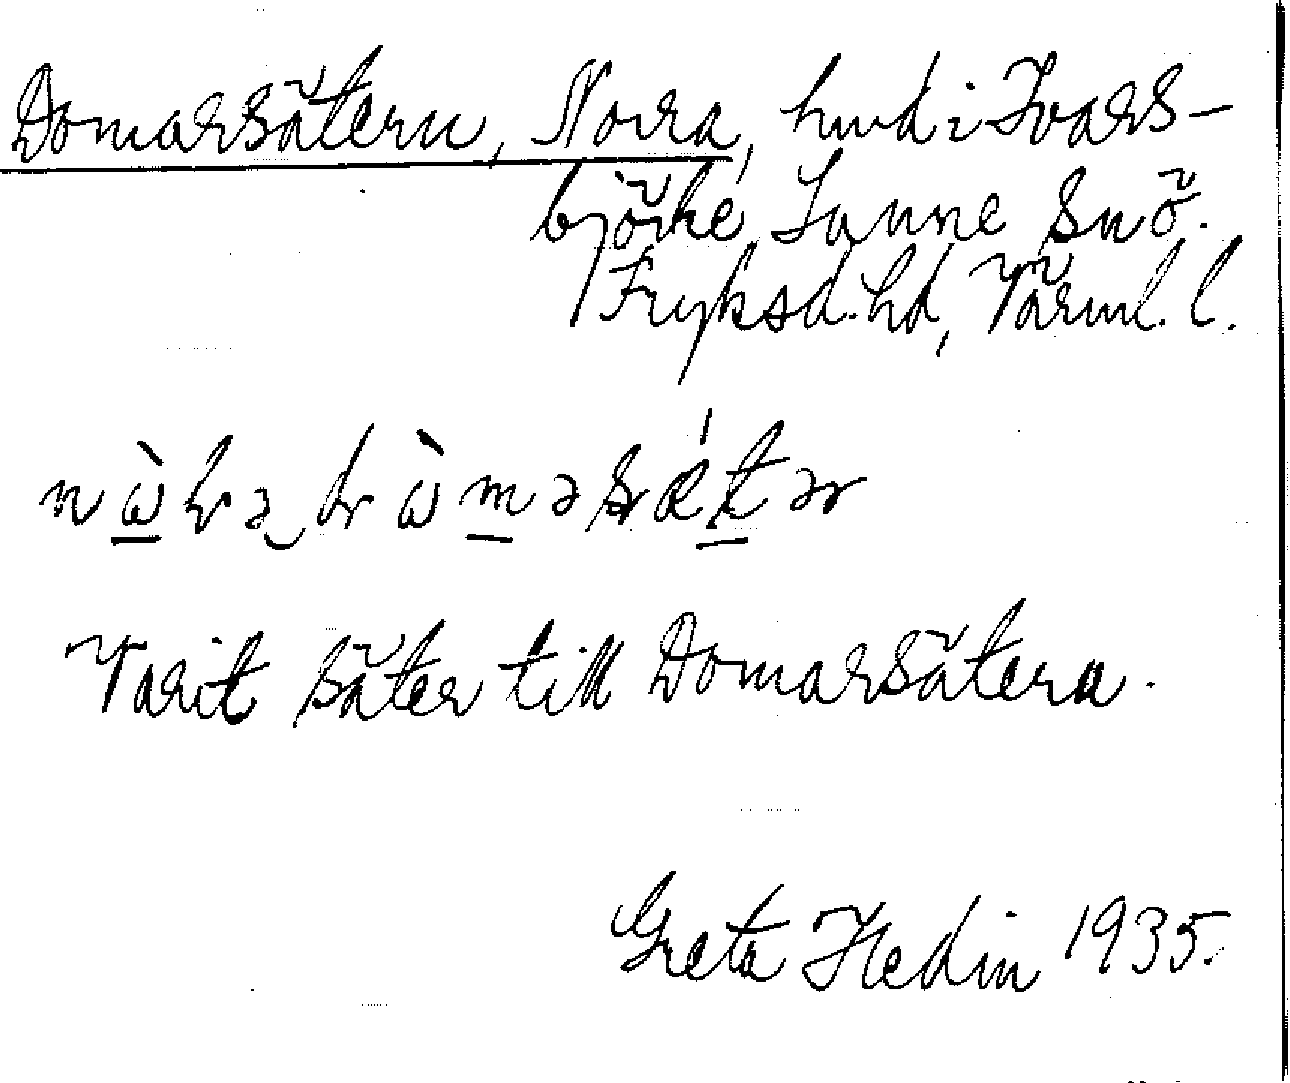 Domarsätern, Norra, hmd i Ivars-
björke, Sunne snö.
Fryksd. hd, Värml. l.
Varit säter till Domarsätern.
Greta Hedin 1935.